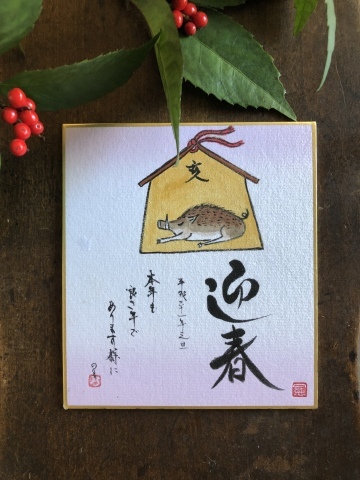 亥
迎春
平成三十一年元旦
本年も
良い年で
あります様に